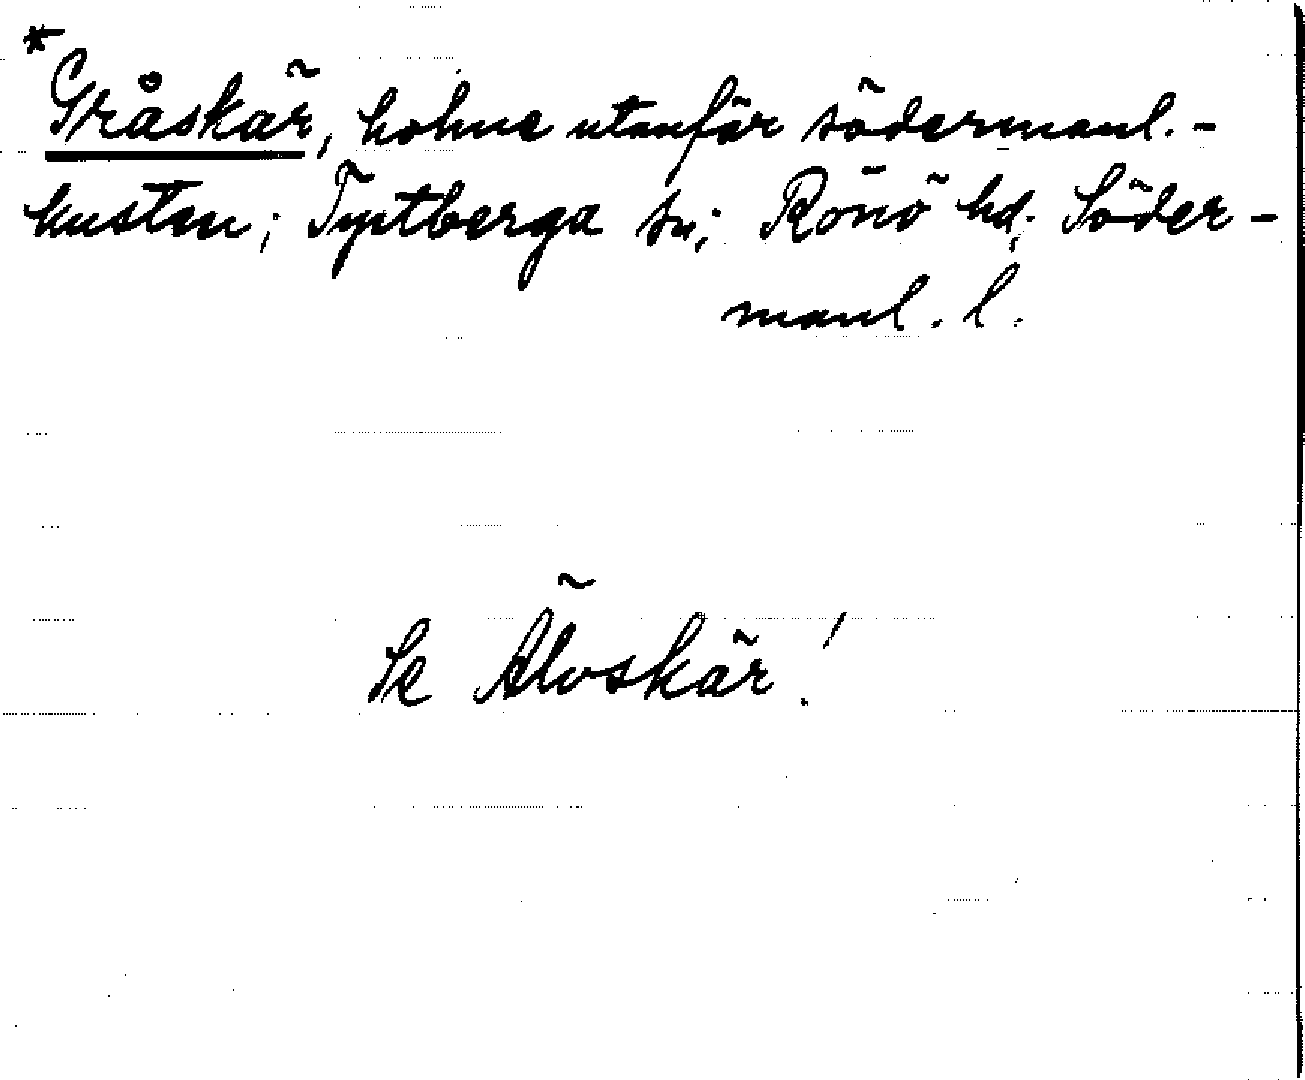 *Gråskär, holme utanför södermanl.-
kusten; Tystberga sn; Rönö hd; Söder-
manl. l.
Se Älvskär!